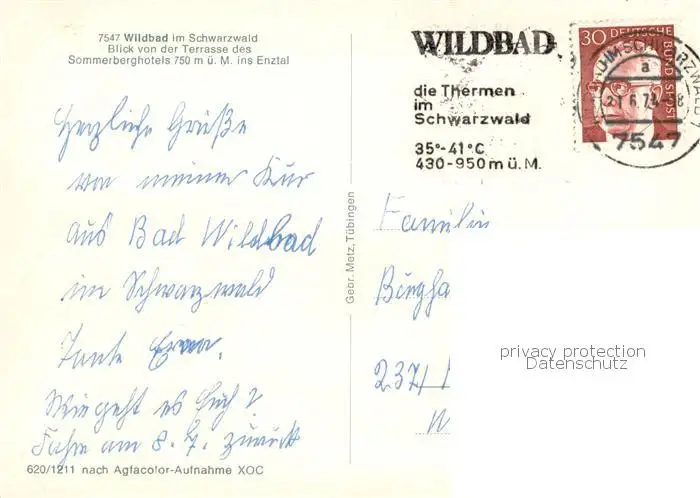 7547 Wildbad im Schwarzwald
Blick von der Terrasse des
Sommerberghotels 750 m ü. M. ins Enztal
WILDBAD
die Thermen
im
Schwarzwald
35°-41°C
430-950 m ü. M.
30 DEUTSCHE BUNDESPOST
a
21.6.7
7547
Herzliche Grüße
von meiner Kur
aus Bad Wildbad
im Schwarzwald
Tante
Wie geht es Euch?
Fahre am 8. 7. zurück
Gebr. Metz, Tübingen
Familie
237/
privacy protection
Datenschutz
620/1211 nach Agfacolor-Aufnahme XOC